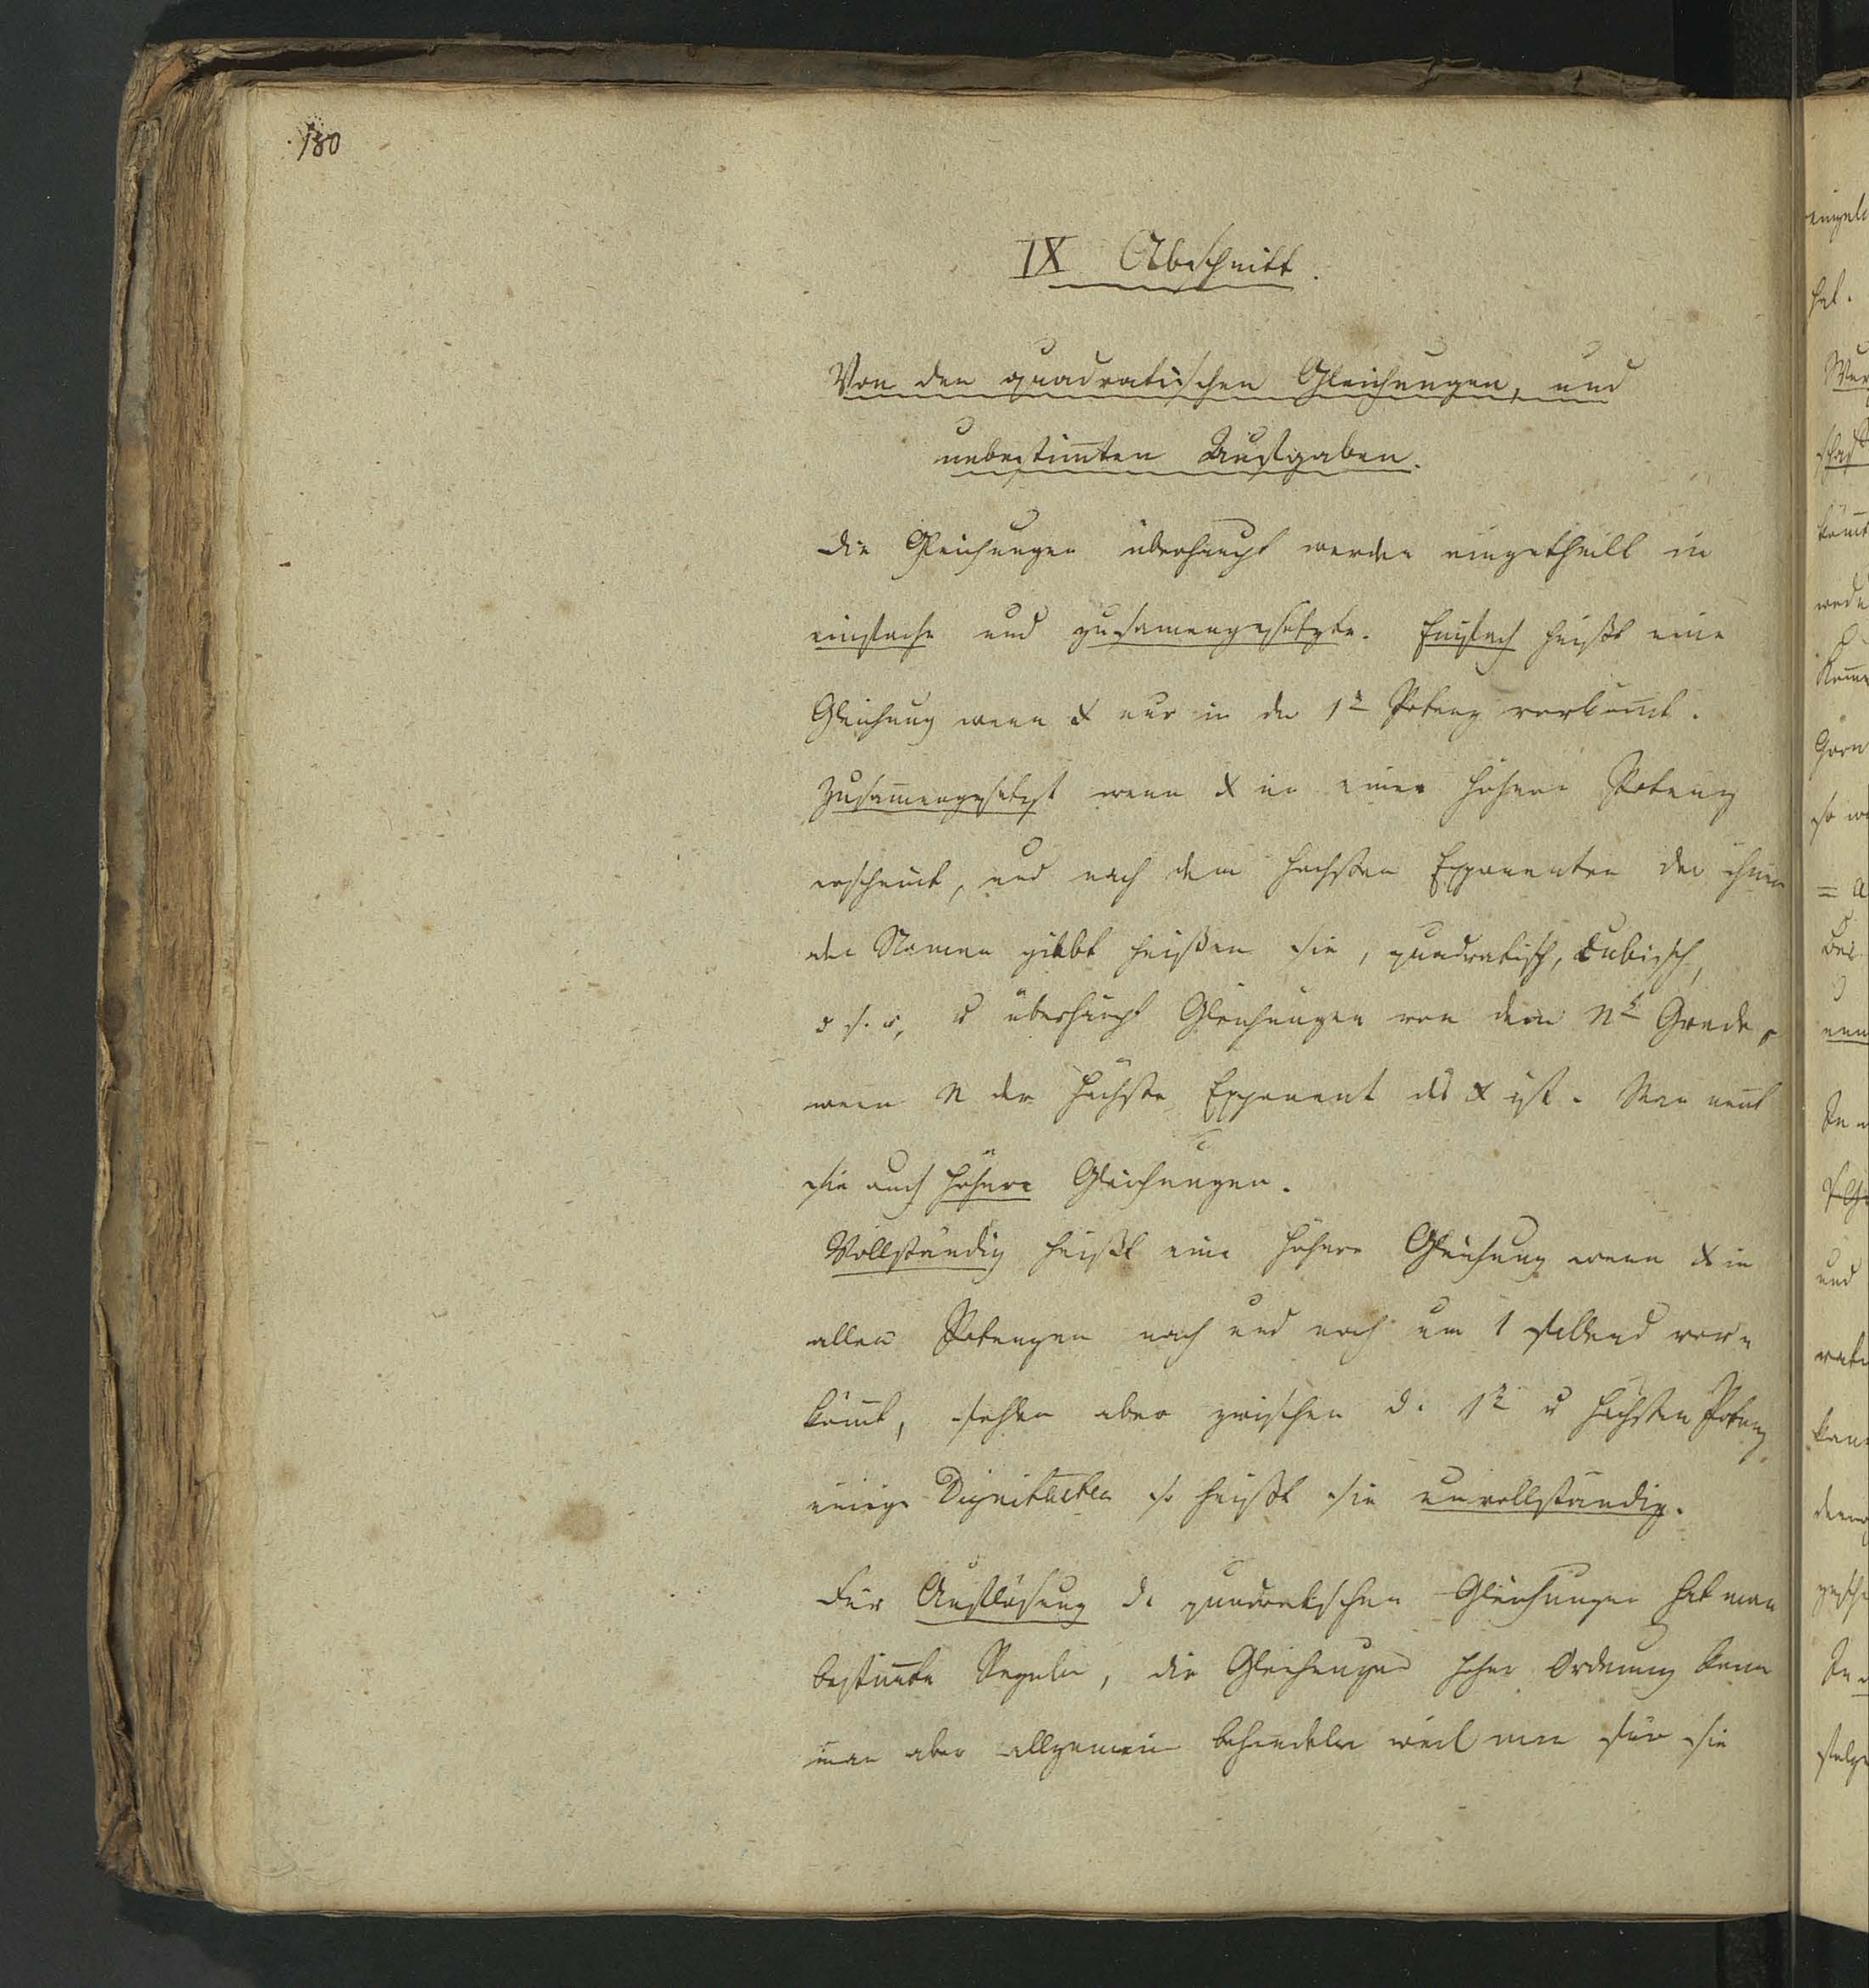 180
IX Abschnitt.
Von den quadratischen Gleichungen, und
unbestim̄ten Aufgaben.
Die Gleichungen überhaupt werden eingetheilt in
einfache und zusam̄engesetzte. Einfach heißt eine
Gleichung wenn x nur in der 1n Potenz vorkom̄t.
Zusam̄engesetzt wenn x in einer höhern Potenz
erscheint, und nach dem höchsten Exponenten der ihnen
den Namen giebt heißen sie, quadratisch, Cubisch,
u s. w, u überhaupt Gleichungen von dem nt Grade,
wenn n der höchste Exponent des x ist. Man nen̄t
sie auch höhere Gleichungen.
Vollständig heißt eine höhere Gleichung wenn x in
allen Potenzen nach und nach um 1 fallend vor=
köm̄t, fehlen aber zwischen d. 1n u höchsten Potenz
einige Dignitaeten so heißt sie unvollständig.
Für Auflösung d. quadratischen Gleichungen hat man
bestim̄te Regeln, die Gleichungen höher Ordnung kann
man aber allgemein behandeln weil man für sie